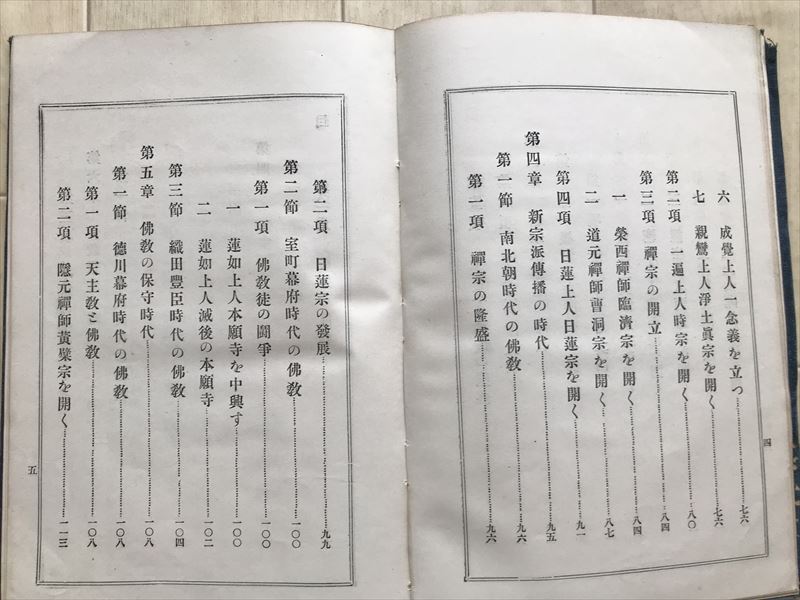 六 成覺上人一念義を立つ……七六
七 親鸞上人淨土眞宗を開く……七六
第二項 一遍上人時宗を開く……八〇
第三項 禪宗の開立……八四
一 榮西禪師臨濟宗を開く……八四
二 道元禪師曹洞宗を開く……八七
第四項 日蓮上人日蓮宗を開く……九一
第四章 新宗派傳播の時代……九五
第一節 南北朝時代の佛敎……九六
第一項 禪宗の隆盛……九六
四
第二項 日蓮宗の發展……九九
第二節 室町幕府時代の佛敎……一〇〇
第一項 佛敎徒の鬪爭……一〇〇
一 蓮如上人本願寺を中興す……一〇〇
二 蓮如上人滅後の本願寺……一〇二
第三節 織田豐臣時代の佛敎……一〇四
第五章 佛敎の保守時代……一〇八
第一節 德川幕府時代の佛敎……一〇八
第一項 天主敎と佛敎……一〇八
第二項 隱元禪師黃檗宗を開く……一一三
五